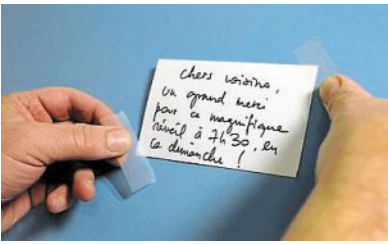 chers voisins,
un grand merci
pour ce magnifique
réveil à 7h30, en
ce dimanche !